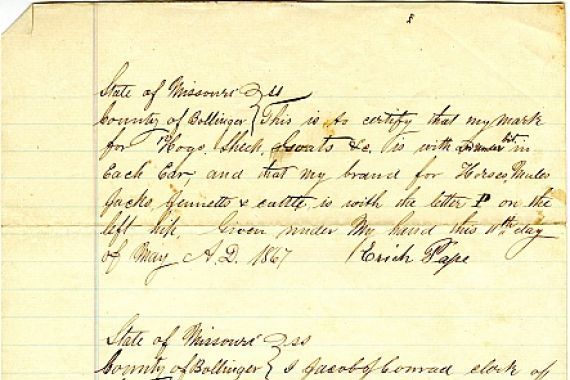 State of Missouri } ss
County of Bollinger } This is to certify that my mark
for Hogs, Sheek, Goats &c. is with bit in
Each Ear, and that my brand for Horses, Mules
Jacks Jennetts & cattle, is with the letter P on the
left hip. Given under My hand this 11th day
of May A.D. 1867 Erich Pape
State of Missouri } ss
County of Bollinger } I Jacob J Conrad clerk of